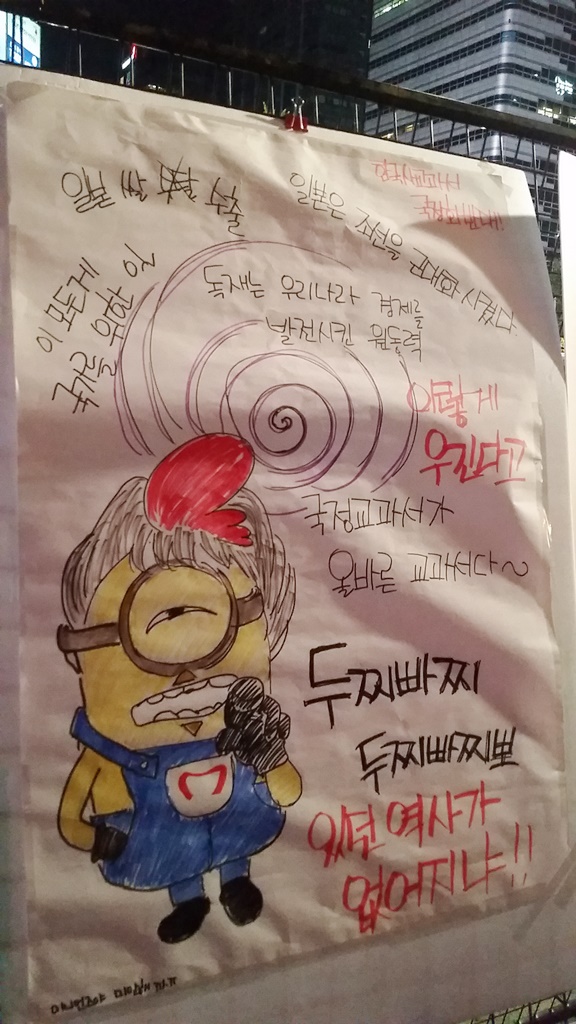 일본 쌀 수출
일본은 조선을 근대화 시켰다.
이 모든게
국가를 위한 일
독재는 우리나라 경제를
발전시킨 원동력
이렇게
우긴다고
국정교과서가
올바른 교과서다~
두찌빠찌
두찌빠찌뽀
있던 역사가
없어지냐!!